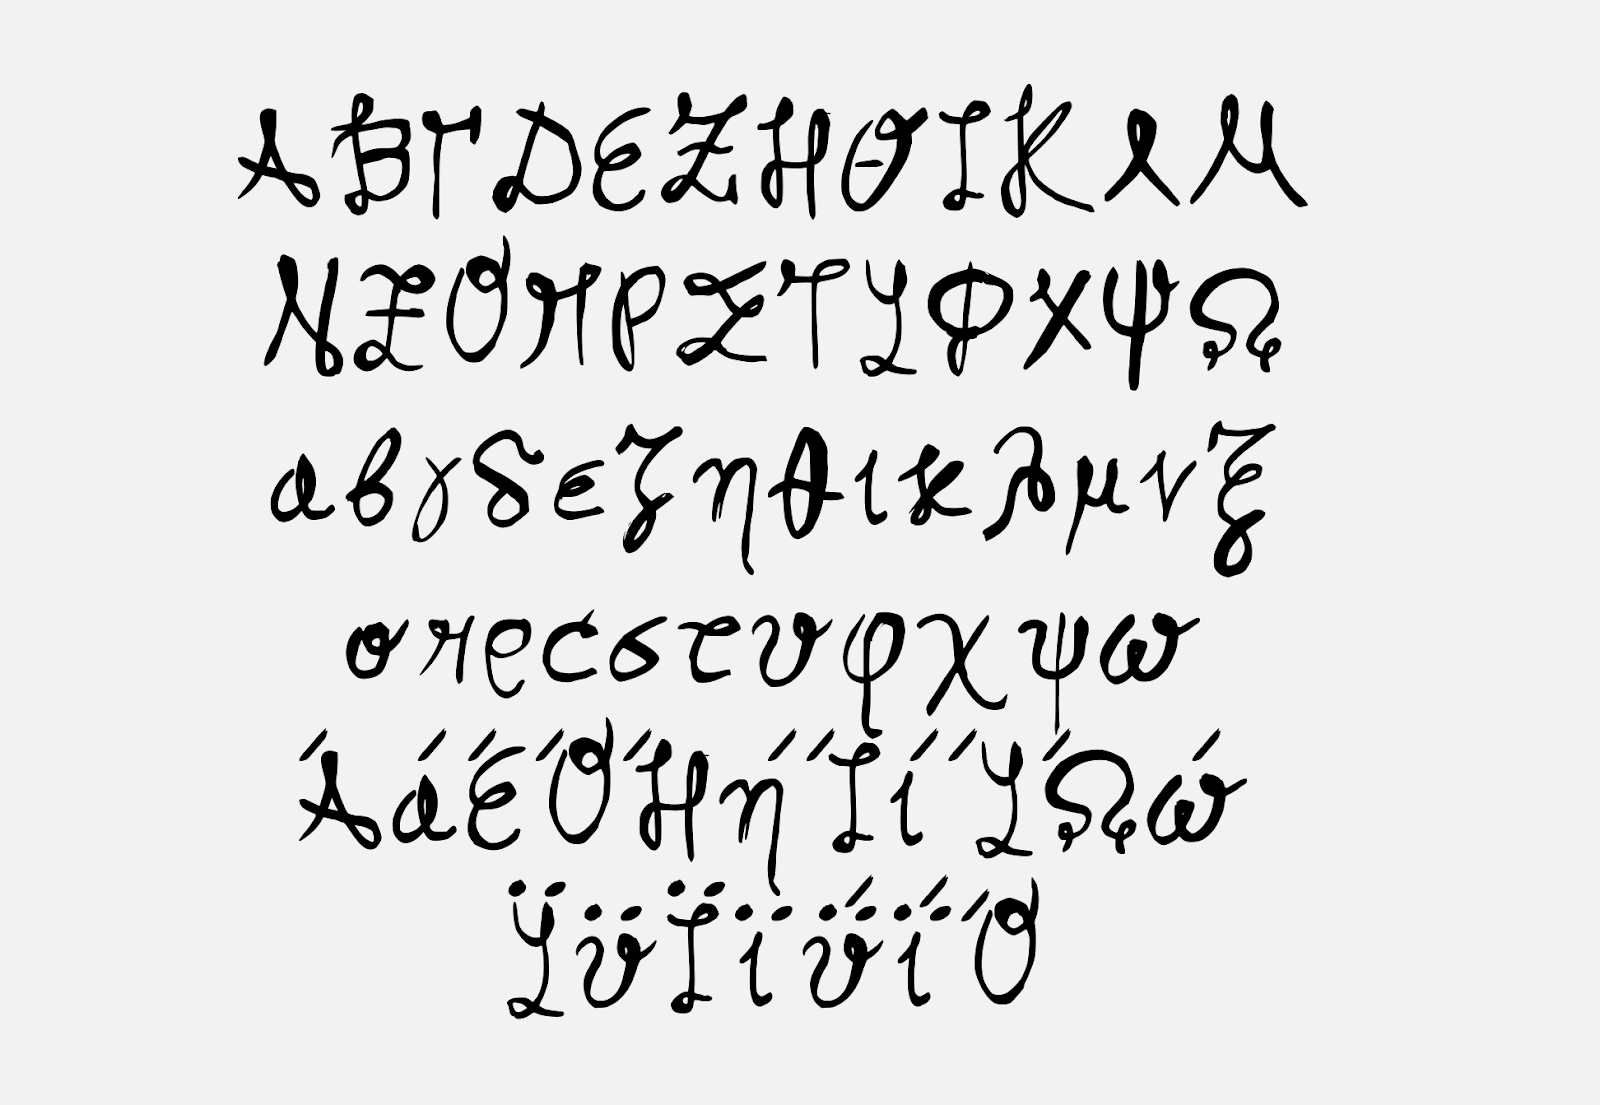 ΑΒΓΔΕΖΗΘΙΚΛΜ
ΝΞΟΠΡΣΤΥΦΧΨΩ
αβγδεζηθικλμνξ
οπρςστυφχψω
ΆάΈΌΉήΊίΎΏώ
ΫϋΪϊΰΐΌ